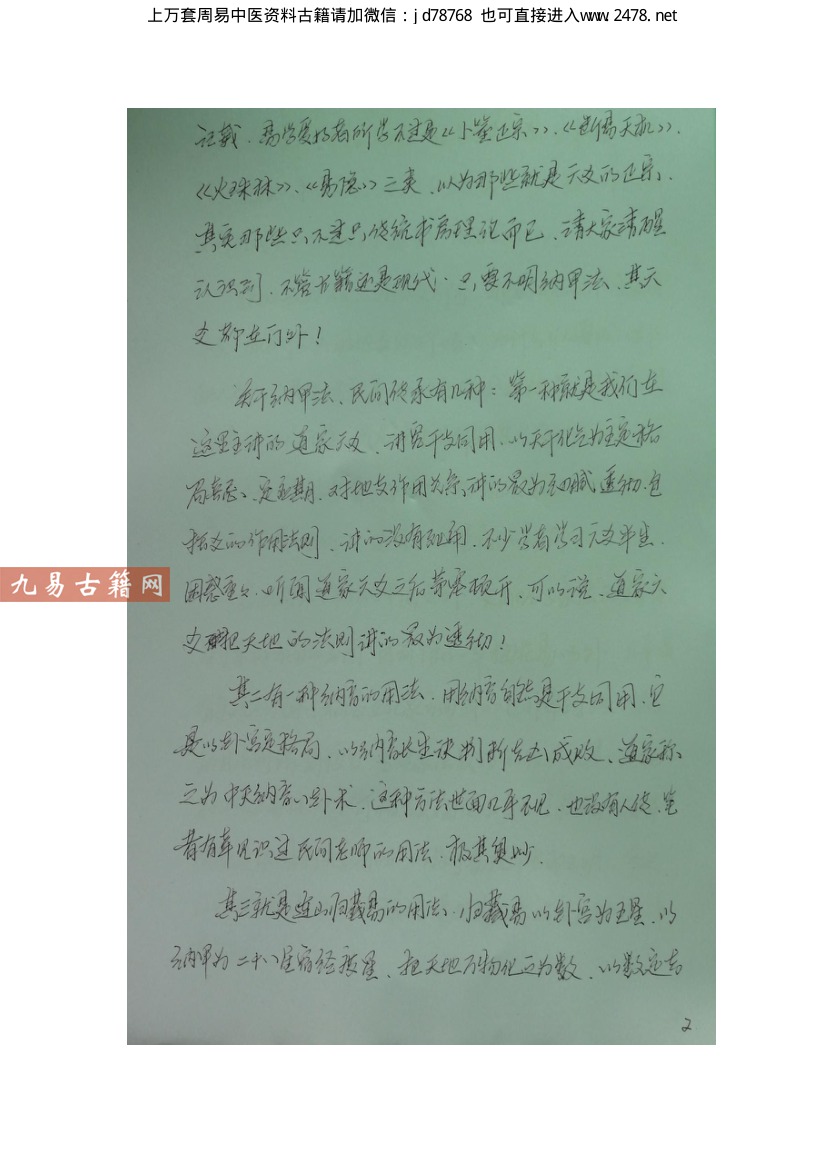 上万套周易中医资料古籍请加微信：jd78768 也可直接进入www.2478.net
记载．易学爱好者所学不过是《卜筮正宗》、《断易天机》、
《火珠林》、《易隐》之类、以为那些就是六爻的正宗、
其实那些只不过只传统书房理论而已、请大家清醒
认识到、不管古籍还是现代、只要不明纳甲法、其六
爻都在门外！
关于纳甲法、民间传承有几种：第一种就是我们在
这里主讲的道家六爻、讲究干支同用、以天干化气为主定格
局、定应期、对地支作用关系讲的最为细腻透彻、包
括爻的作用法则、讲的没有、不少学者学习六爻半生、
困惑重重、听闻道家六爻之后茅塞顿开、可以说、道家六
爻把天地的法则讲的最为透彻！
其二有一种纳音的用法、用纳音自然是干支同用、它
是以卦宫定格局、以纳音长生诀判断吉凶成败、道家称
之为中天纳音卦术、这种方法世面几乎不见、也没有人传、笔
者有幸见识过民间老师的用法、极其奥妙．
其三就是连山归藏易的用法、归藏易以卦宫为五星、以
纳甲为二十八星宿经度星、把天地万物化之为数、以数定吉
2
九易古籍网